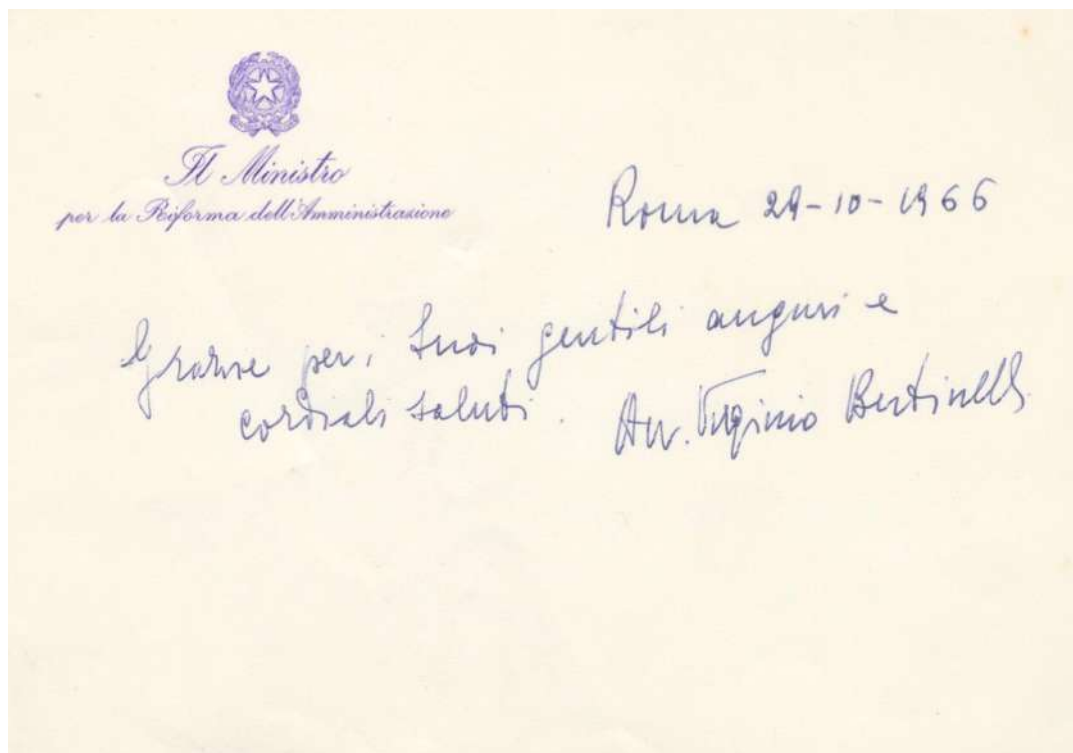 Il Ministro
per la Riforma dell'Amministrazione
Roma 29-10-1966
Grazie per i Suoi gentili auguri e
cordiali saluti. Avv. Virginio Bertinelli